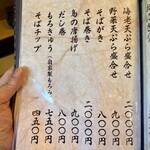 海老天ぷら盛合せ 二〇〇〇円
野菜天ぷら盛合せ 九〇〇円
そばがき 一〇〇〇円
そば巻き 八〇〇円
鳥の唐揚げ 九〇〇円
だし巻 八〇〇円
もろきゅう(自家製もろみ) 七五〇円
そばチップ 四五〇円